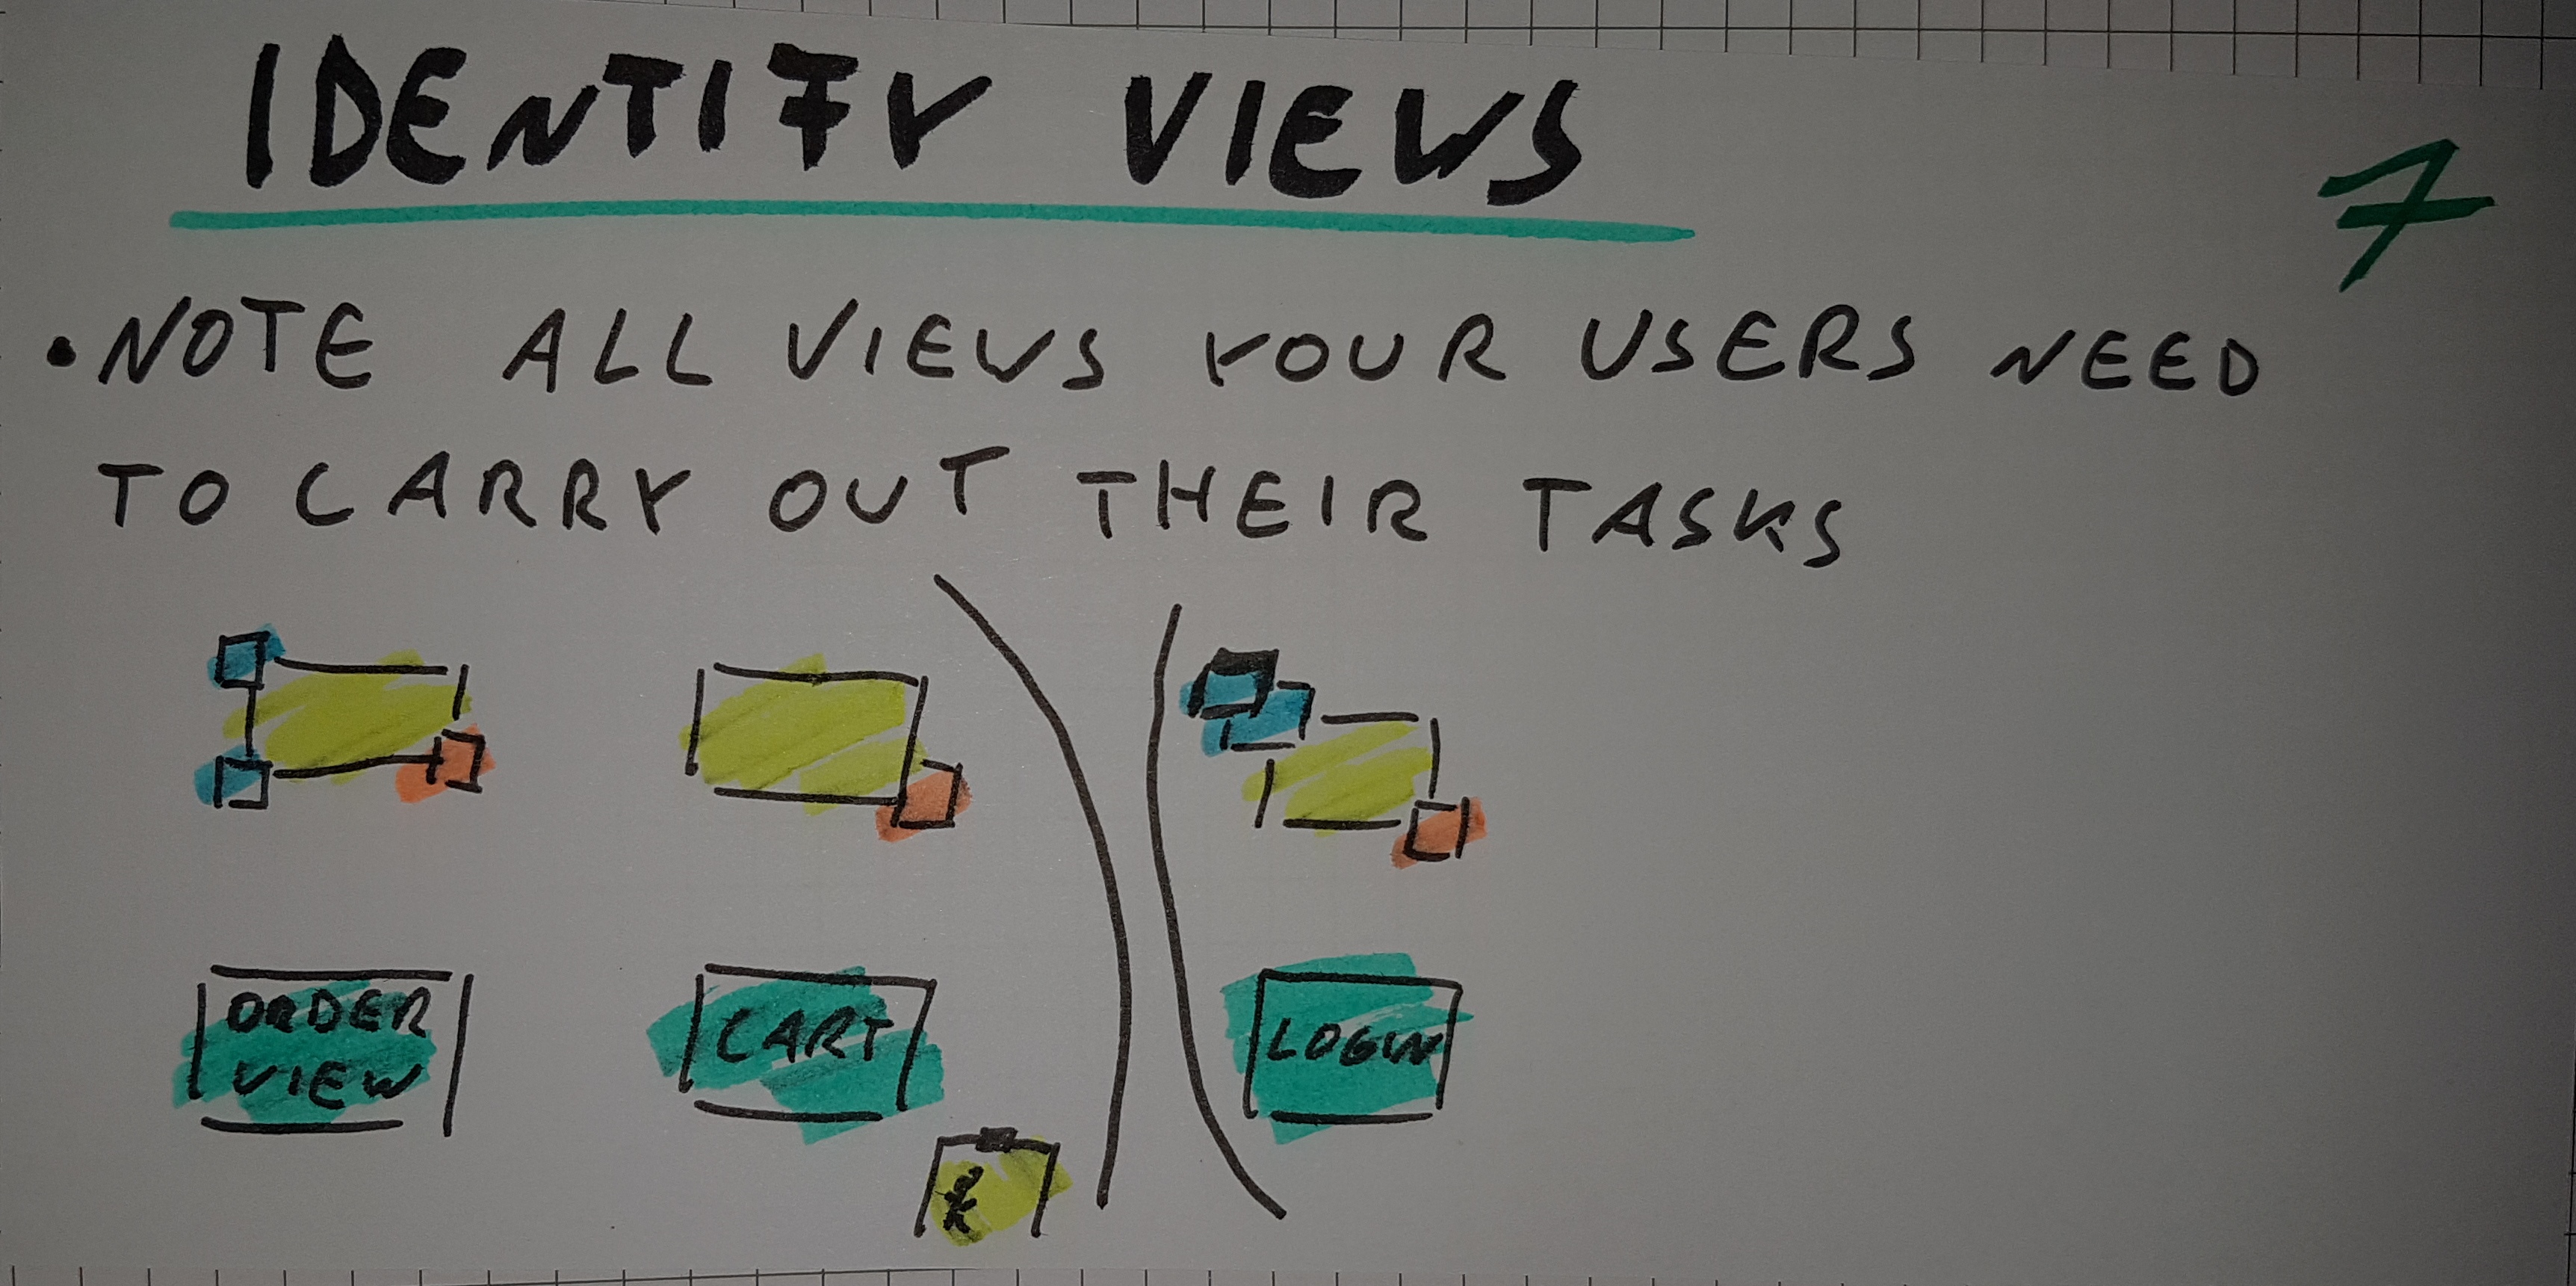 IDENTIFY VIEWS
7
• NOTE ALL VIEWS YOUR USERS NEED
TO CARRY OUT THEIR TASKS
ORDER
VIEW
CART
LOGIN